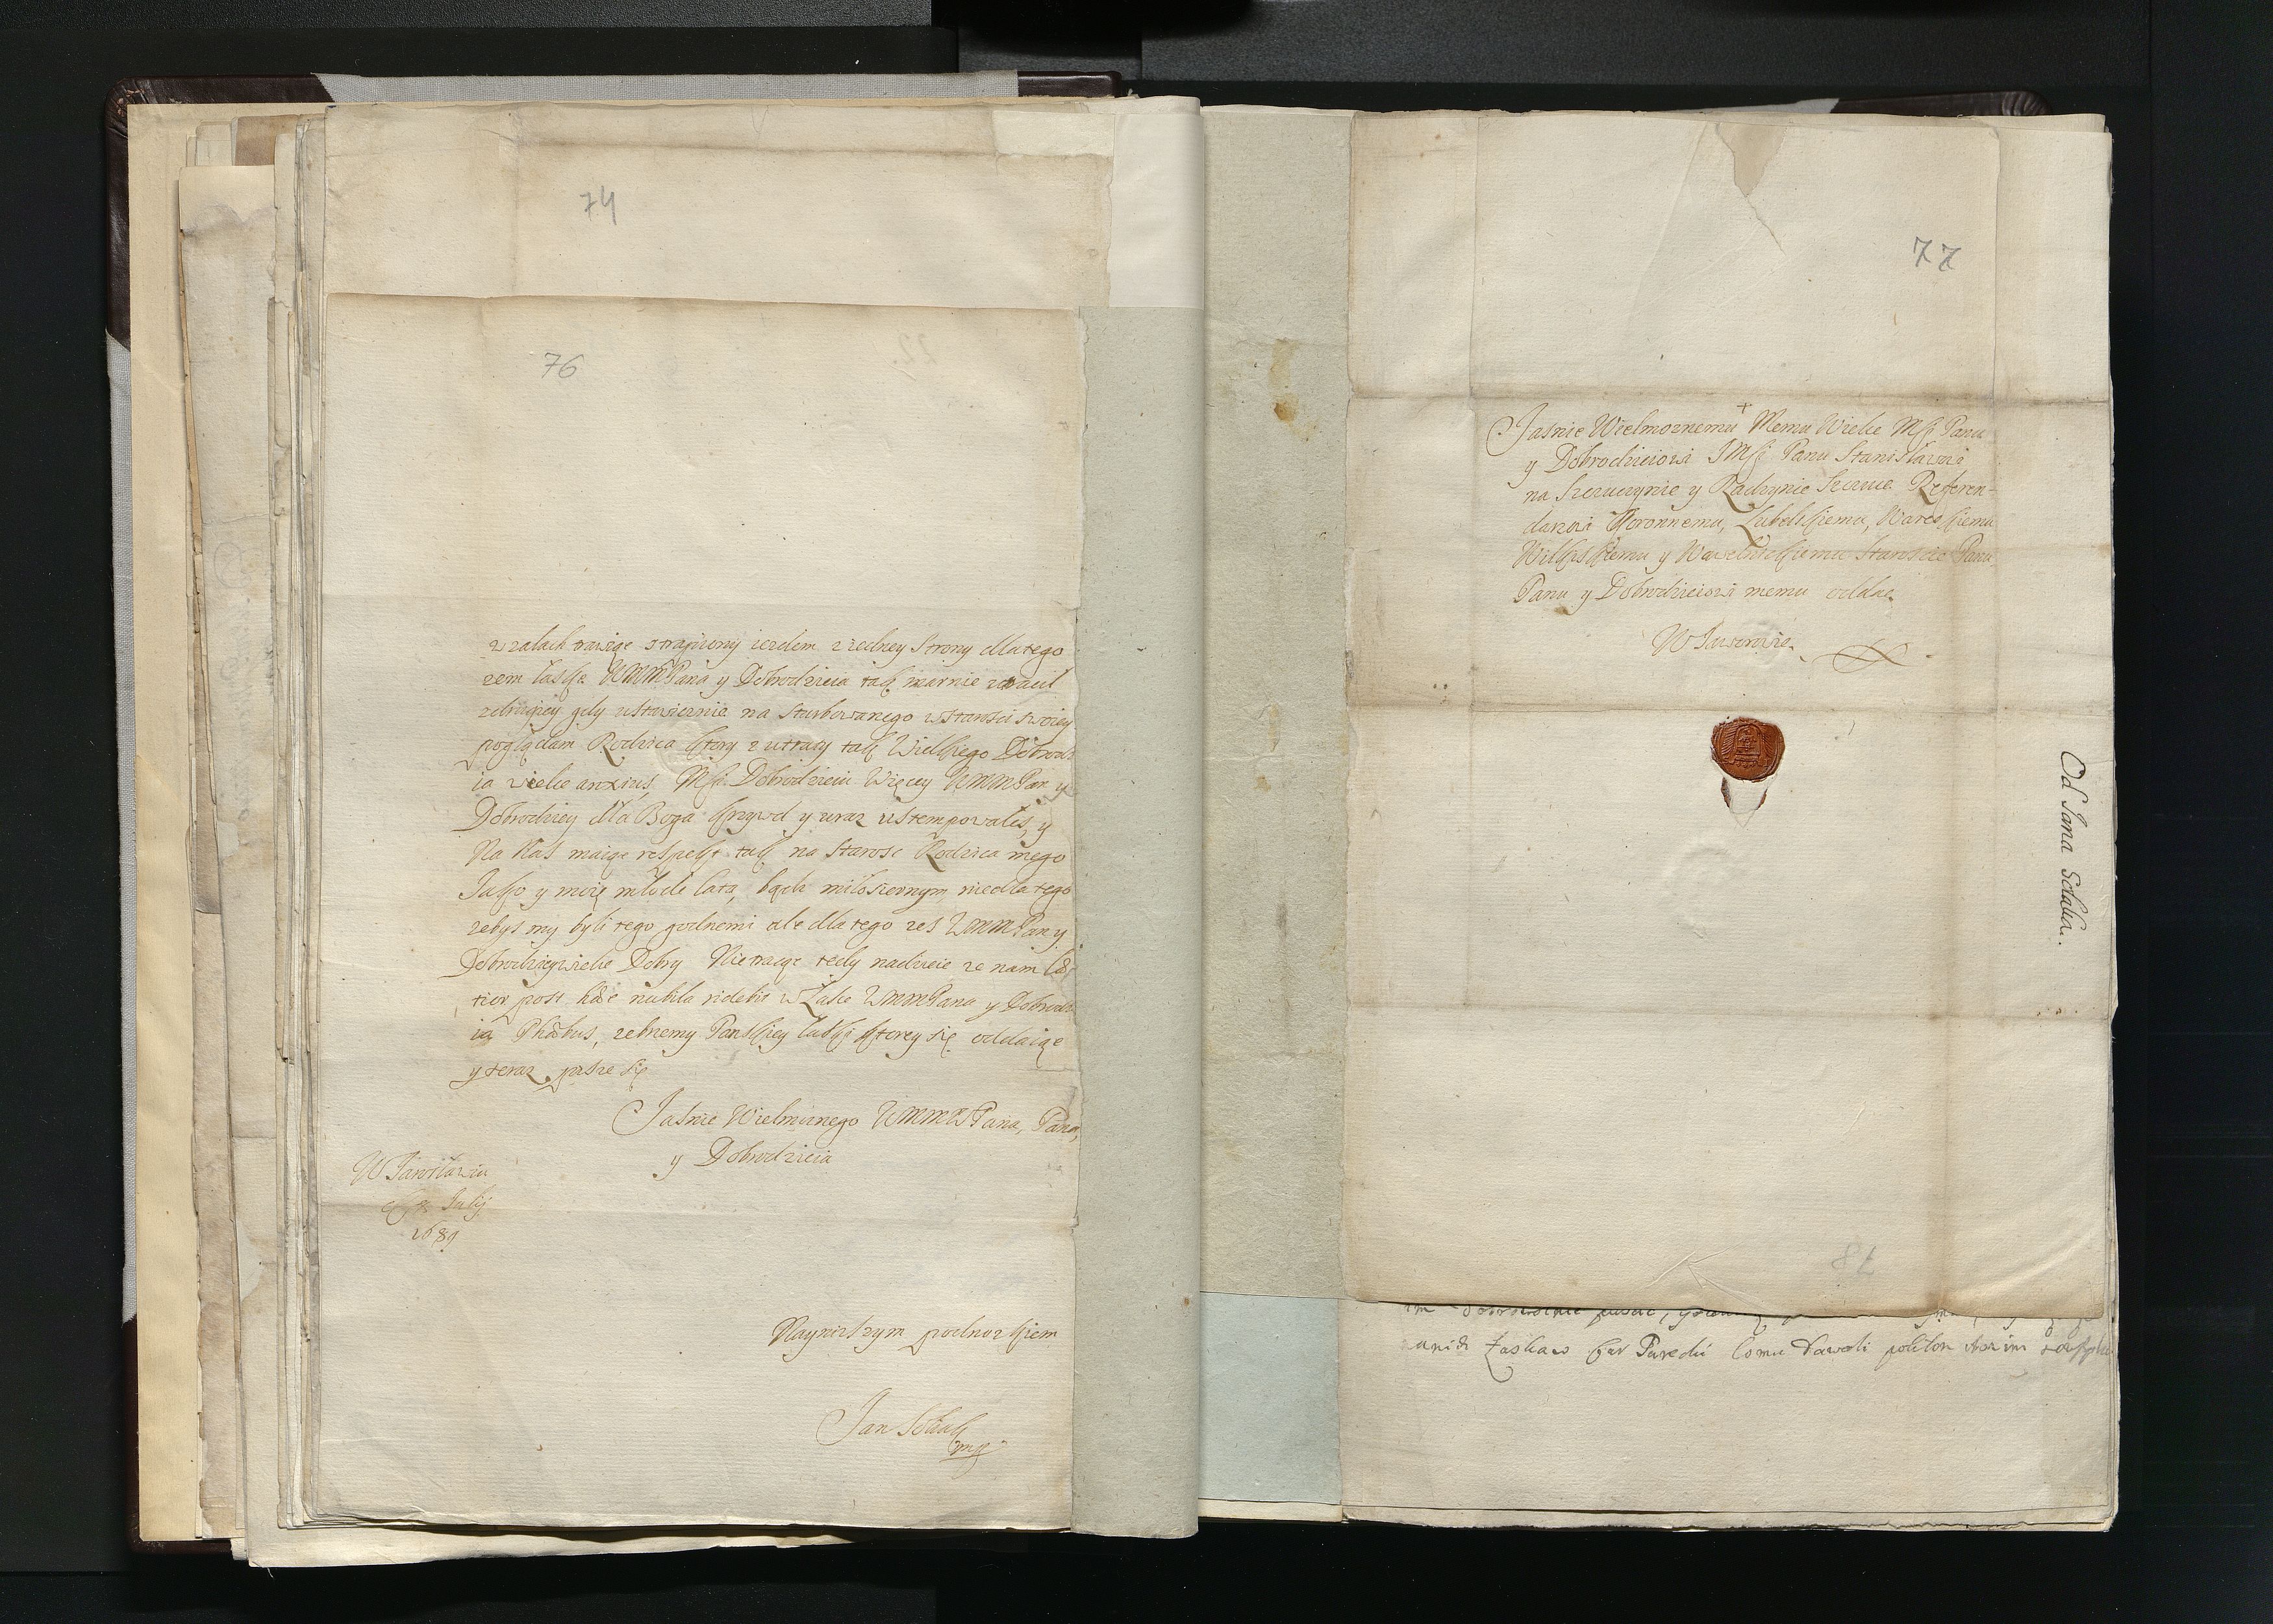 74
76
w zalach tonąc strapiony iezdem z iedney strony dla tego
zem łaskę WMMPana y Dobrodzieia tak marnie utracił
z drugiey gdy ustawicznie na sturbowanego w starosci swoiey
poglądam Rodzica ktory z utraty tak Wielkiego Dobrodz
ia wielce anxius, Msci Dobrodzieiu Więcey WMMPan y
Dobrodziey dla Boga krzywd y uraz ustempowałes, y
Na Nas maiąc respekt tak na starosc Rodzica mego
Jako y moię młode lata, bądz miłosiernym nie dla tego
zebys my byli tego godnemi ale dla tego zes WMMPan y
Dobrodziey wielce Dobry Nie tracąc tedy nadzieie ze nam læ
tior post hæc nubila ridebit w Łasce WMMPana y Dobrodz
ia Phæbus, zebrzemy Panskiey łaski ktorey się oddaiąc
y teraz pisze się
Jasnie Wielmoznego WMMWPana, Pana,
y Dobrodzieia
W Jarosławiu
Julij
1689
Nayniszszym podnozkiem
Jan
mp
77
Jasnie Wielmoznemu Memu Wielce Msci Panu
y Dobrodzieiowi JMsci Panu Stanisławowi
na Szczuczynie y Radzynie Szczuce Referen-
darzowi Koronnemu, Lubelskiemu, Wareckiemu
y Wąwelnickiemu Staroscie Panu
Panu y Dobrodzieiowi memu oddac
W Jaworowie
Od Jana
78